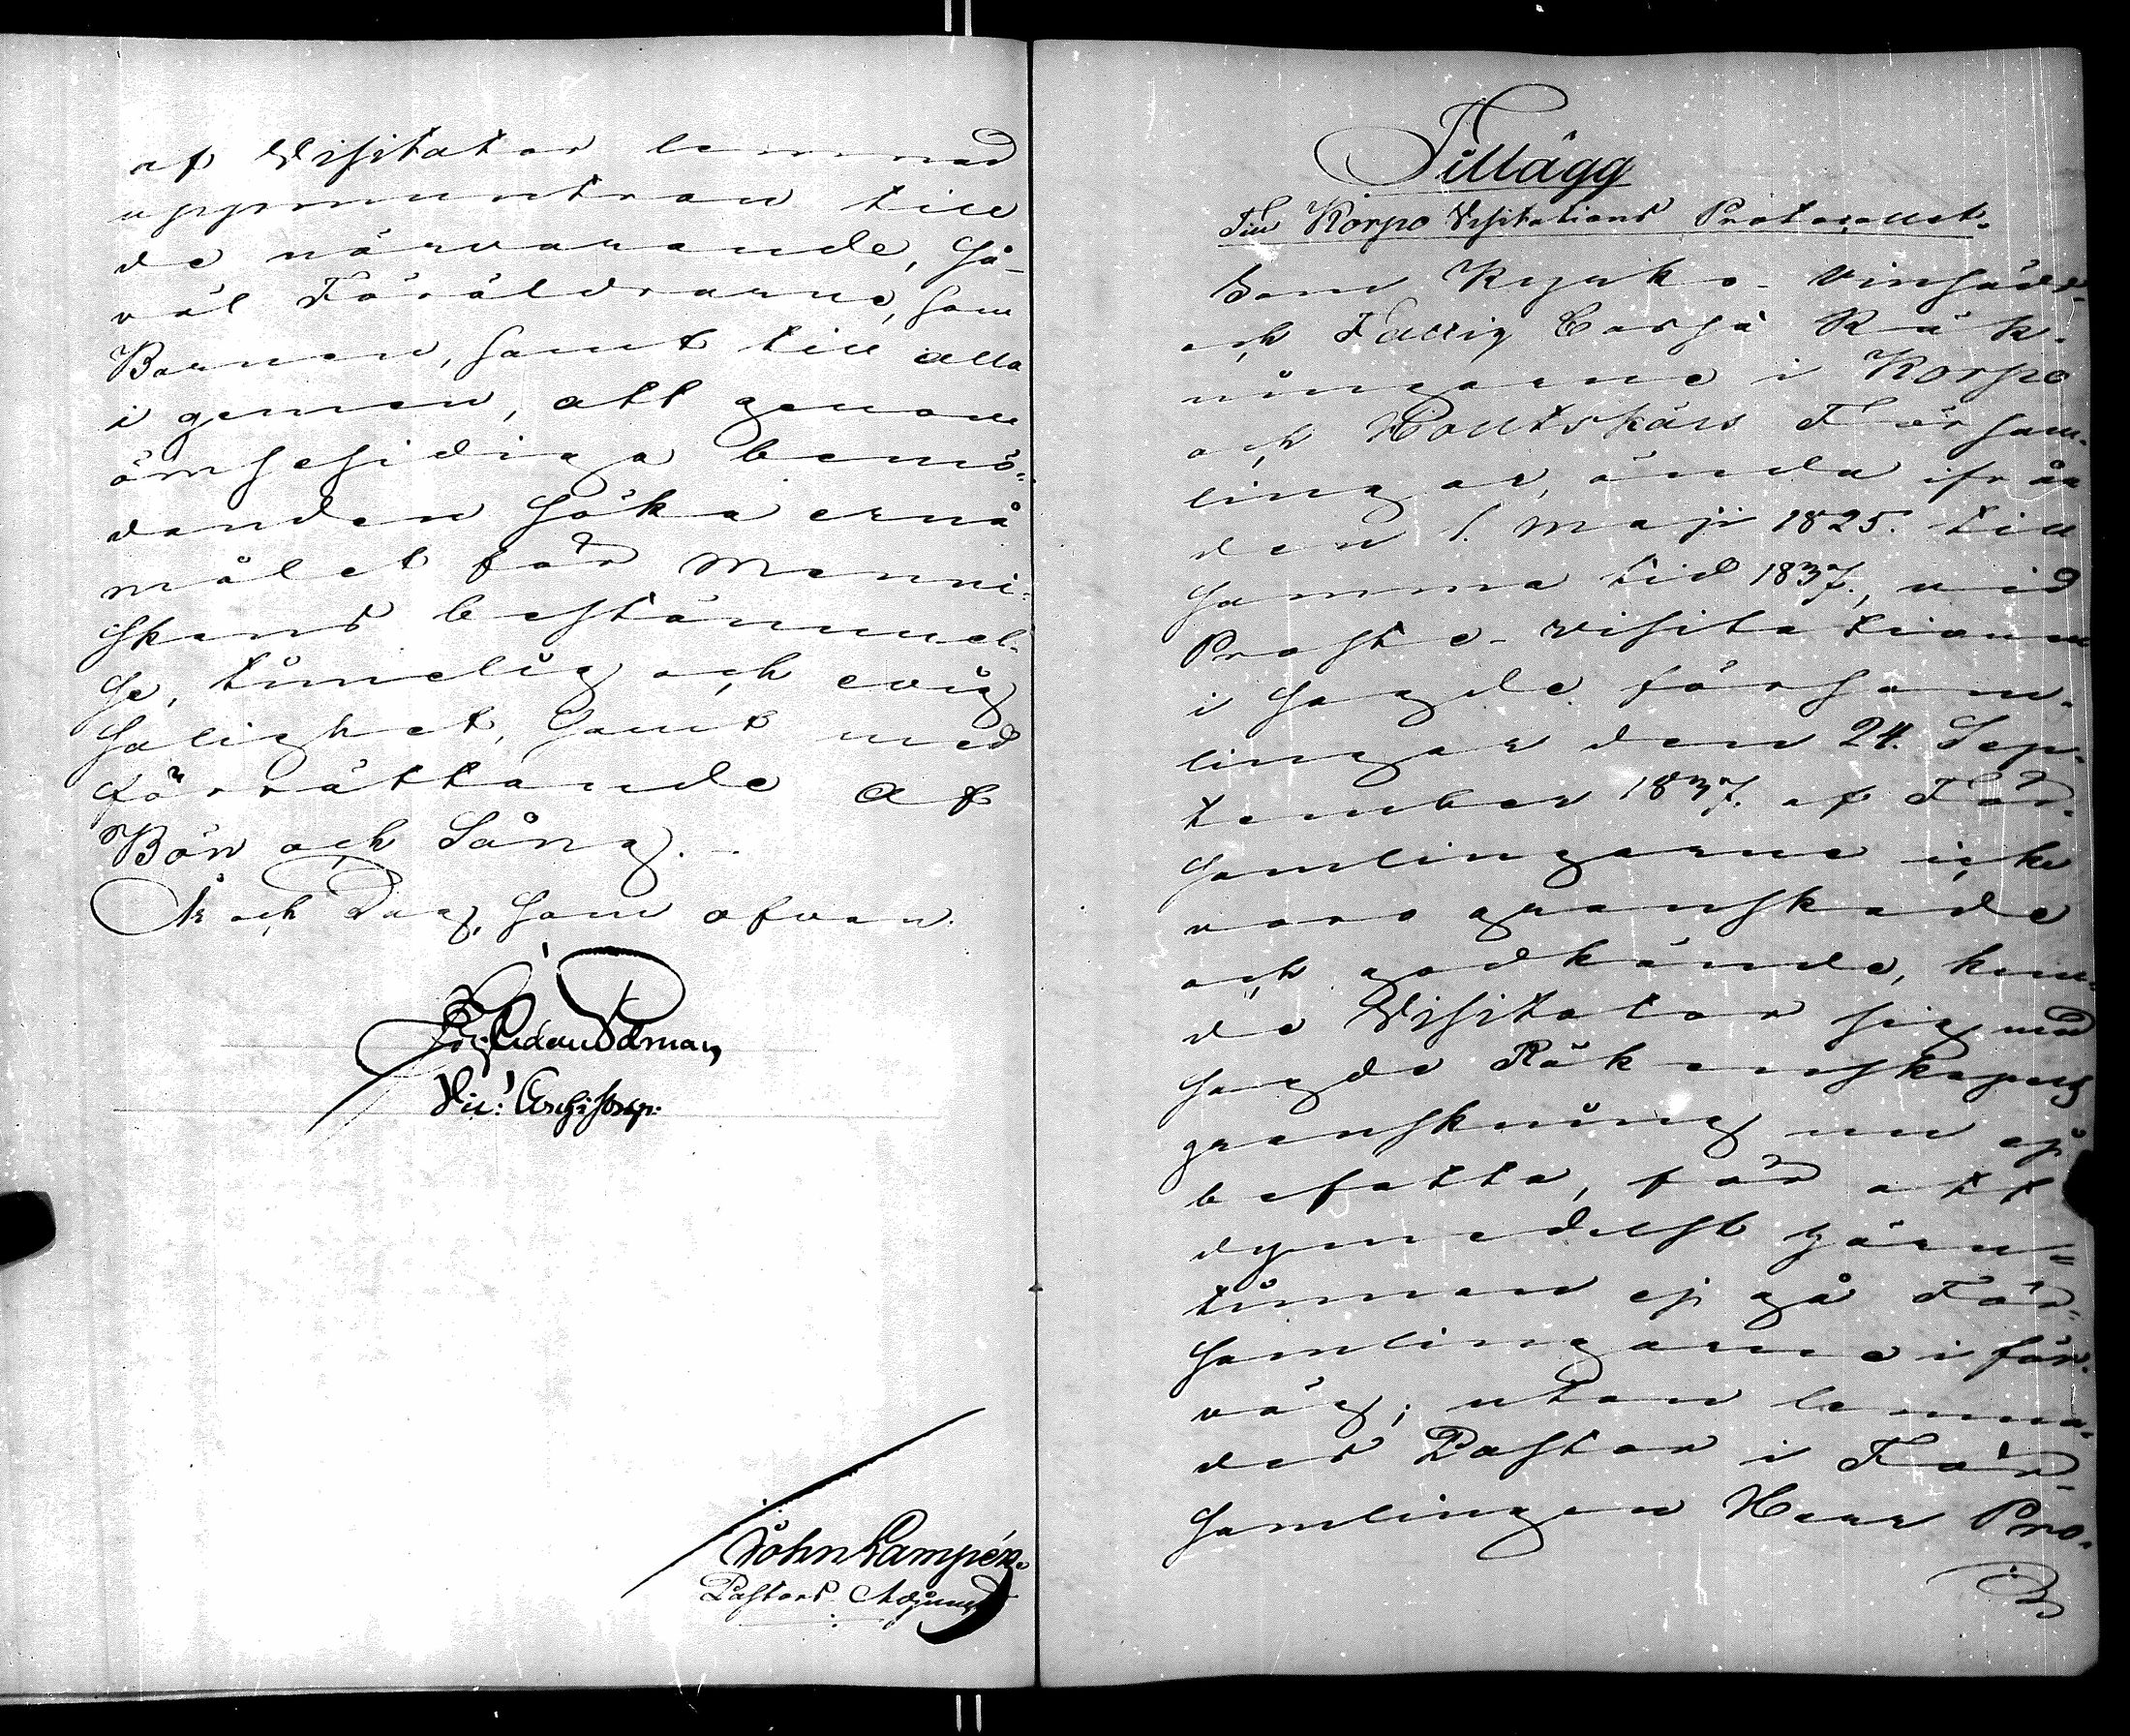 af Visitator lemnad
uppmuntran till
de närvarande, så-
väl Föräldrarne, som
Barnen, samt till alla
i gemen, att genom
ömsesidiga bemö-
danden söka ernå
målet för Menni-
skans bestämmel-
se, timelig och evig
salighet, samt med
förrättande af
Bön och Sång.
År och Dag, som ofvan.
Vic: Archipræp:
John Lampén.
Pastors Adjunct
Tillägg
Till Korpo Visitations Protocollet.
Som Kyrko- Vinsädd-
och Fattig Cassæ Räk-
ningarne i Korpo
och Houtskärs Försam-
lingar, ända ifrån
den 1. Maji 1825. till
samma tid 1837., vid
Proste-Visitationen
i sagde försam-
lingar den 24. Sep-
tember 1837. af För-
samlingarne icke
voro granskade
och godkände, kun-
de Visitator sig med
sagde Räkenskapers
granskning nu ej
befatta, för att
dymedelst gåen-
timmen ej gå För-
samlingarne i för-
väg; utan lemna-
des Pastor i För-
samlingen Herr Pro-